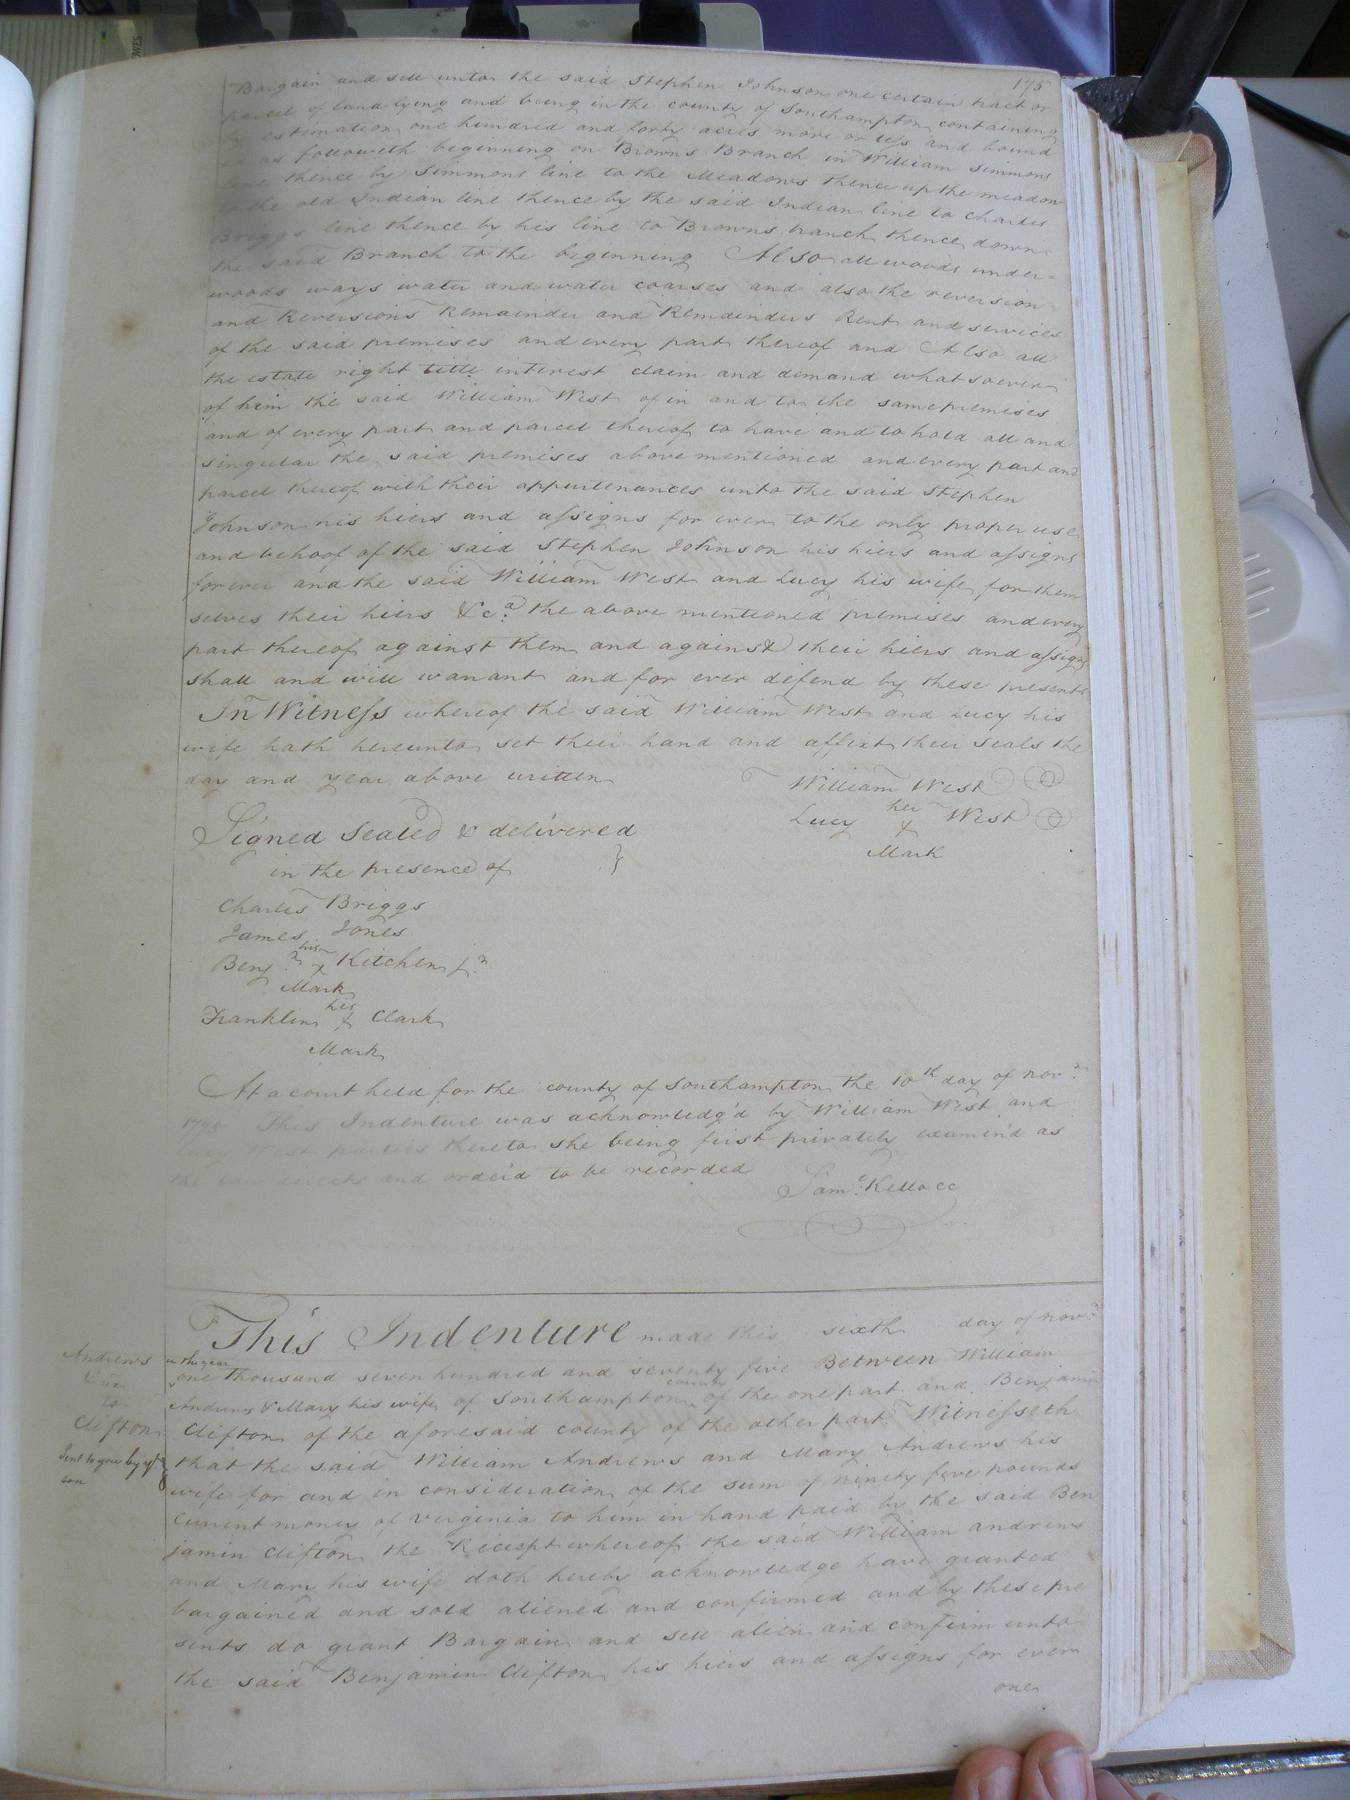 175
Bargain and sell unto the said Stephen Johnson one certain tract or
parcel of land lying and being in the county of Southampton containing
by estimation one hundred and forty acres more or less and bound
as followeth beginning on Browns Branch in William Simmons
line thence by Simmons line to the Meadows thence up the meadow
to the old Indian line thence by the said Indian line to Charles
Briggs line thence by his line to Browns branch thence down
the said Branch to the beginning Also all woods under=
woods ways water and water coarses and also the reversion
and Reversions Remainder and Remainders Rent and services
of the said premises and every part thereof and Also all
the estate right title interest claim and demand whatsoever
of him the said William West of in and to the same premises
and of every part and parcel thereof to have and to hold all and
singular the said premises above mentioned and every part and
parcel thereof with their appurtenances unto the said Stephen
Johnson his hiers and assigns for ever to the only proper use
and behoof of the said Stephen Johnson his hiers and assigns
forever and the said William West and Lucy his wife for them
selves their hiers &ca. the above mentioned premises and every
part thereof against them and against their hiers and assigns
shall and will warrant and for ever defend by these presents
In Witness whereof the said William West and Lucy his
wife hath hereunto set their hand and affixt their seals the
day and year above written
William West
her
Lucy x West
Mark
Signed Sealed & delivered
in the presence of
Charles Briggs
James Jones
his
Benjn. x Kitchen jn.
Mark
his
Franklin x Clark
Mark
At a court held for the county of Southampton the 10th day of Novr.
1775 This Indenture was acknowledg'd by William West and
Lucy West parties thereto she being first privately examin'd as
the law directs and order'd to be recorded
Saml. Kello cc
This Indenture made this sixth day of Novr.
in the year
one thousand seven hundred and seventy five Between William
Andrews & Mary his wife of Southampton county of the one part and Benjamin
Clifton of the aforesaid county of the other part Witnesseth
that the said William Andrews and Mary Andrews his
wife for and in consideration of the sum of ninety five pounds
Current money of Virginia to him in hand paid by the said Ben
jamin Clifton the Reciept whereof the said William andrews
and Mary his wife doth hereby acknowledge have granted
bargained and sold aliened and confirmed and by these pre
sents do grant Bargain and sell alien and confirm unto
the said Benjamin Clifton his hiers and assigns for ever
one
Andrews
& ux
to
Clifton
Sent to you by yr
son